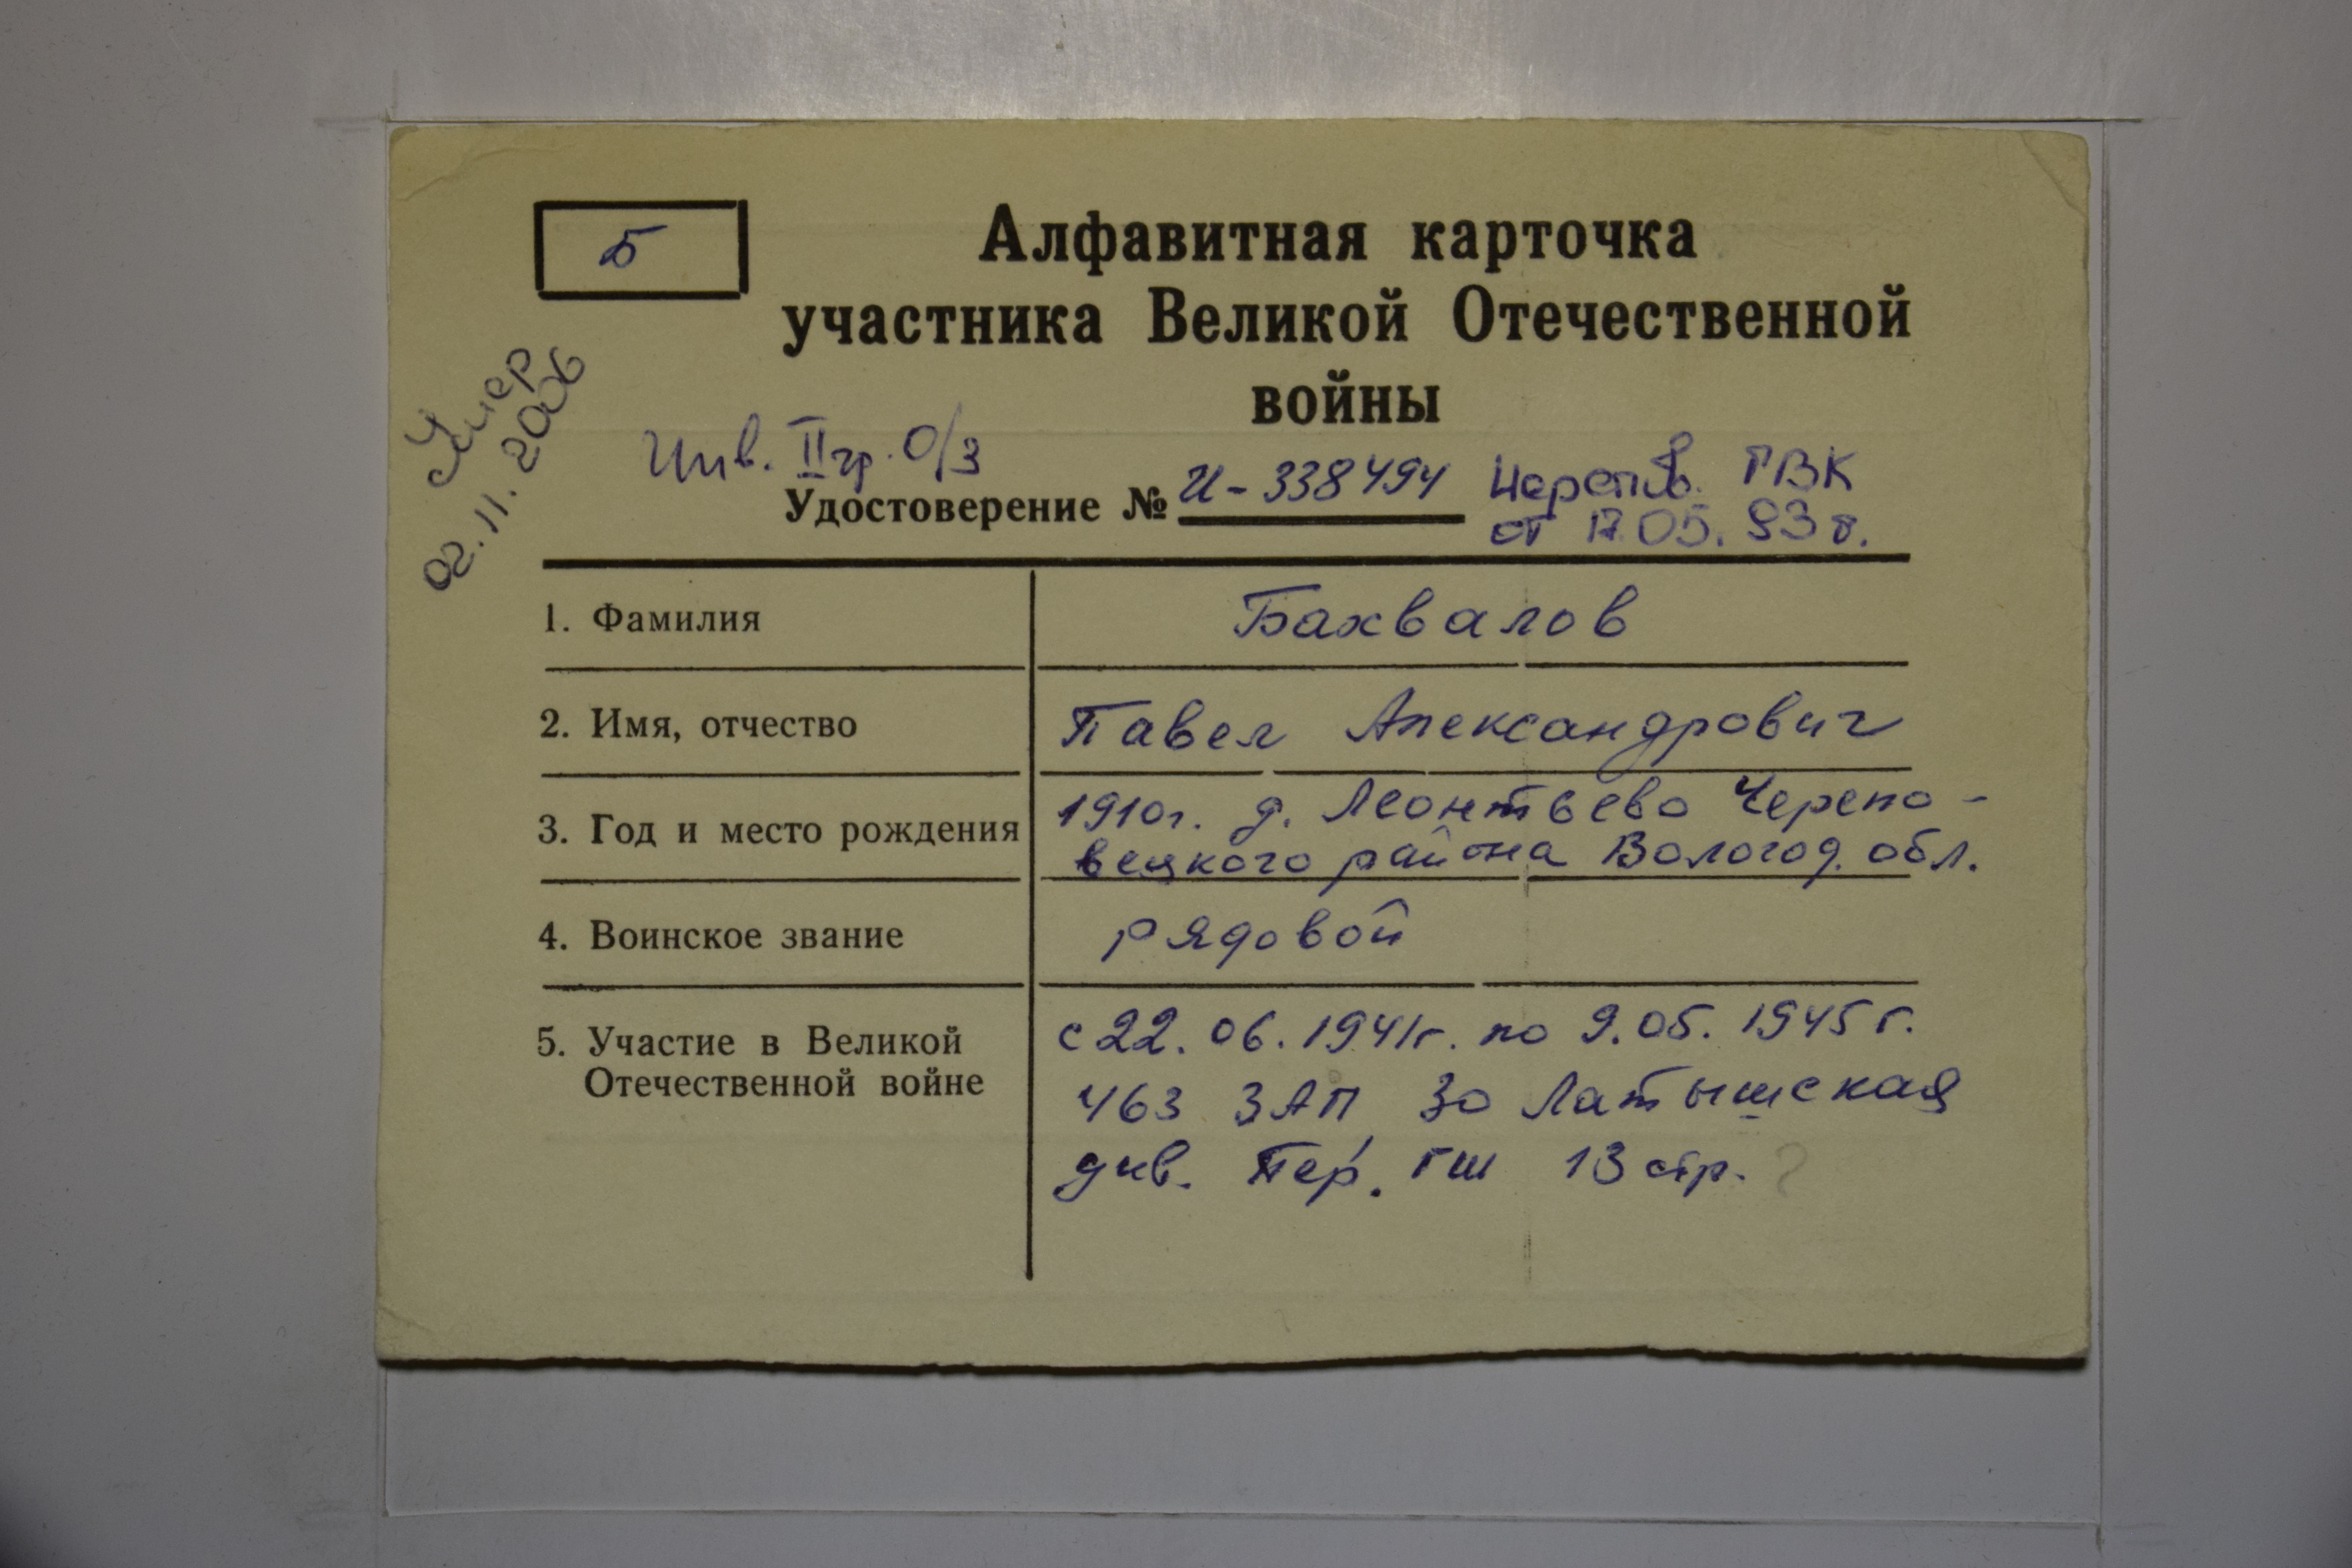 Б
Алфавитная карточка
участника Великой Отечественной
войны
Умер
02.11.2006
Инв. II гр. О/З
Удостоверение № И-338494
Черепов. ГВК
от 17.05.93 г.
1. Фамилия
Бахвалов
2. Имя, отчество
Павел Александрович
3. Год и место рождения
1910г. д. Леонтьево Черепо-
вецкого района Вологод. обл.
4. Воинское звание
рядовой
5. Участие в Великой
Отечественной войне
с 22.06.1941г. по 9.05.1945 г.
463 ЗАП 30 Латышская
див. Пер. ГШ 13 стр.